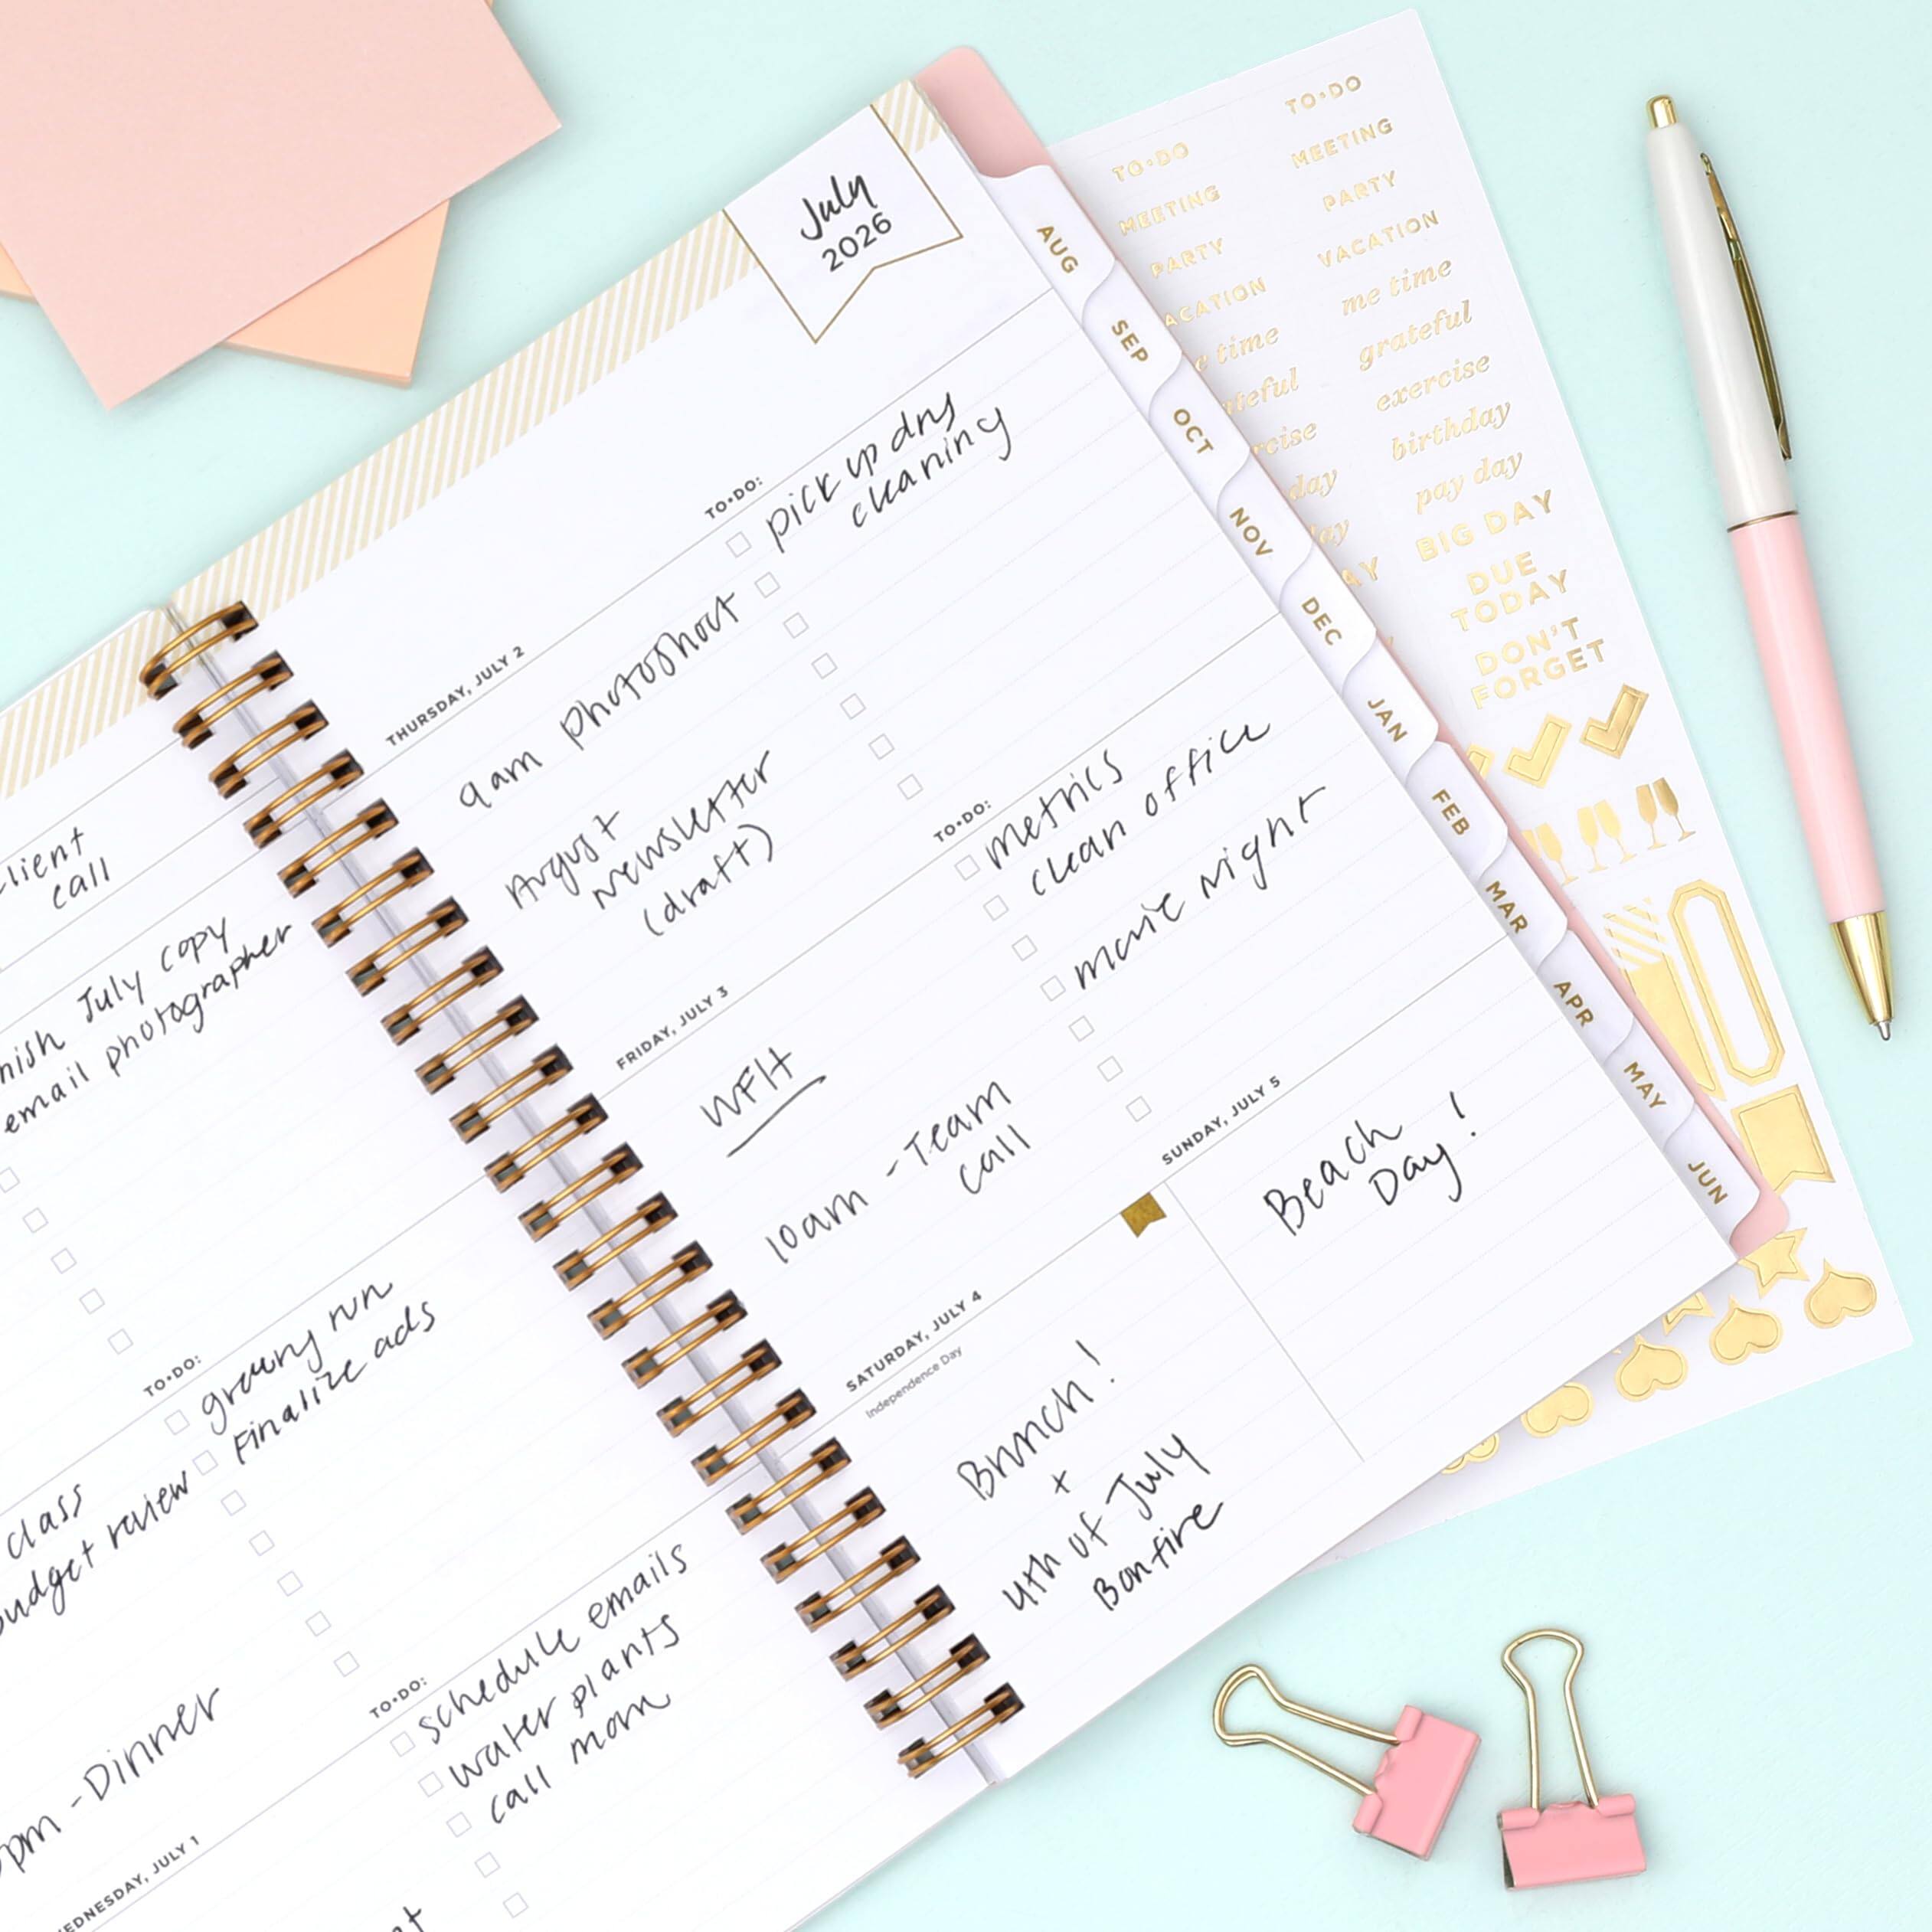 July
2026
THURSDAY, JULY 2
9am photoshoot
August
Newsletter
(draft)
TO•DO:
pick up dry
cleaning
FRIDAY, JULY 3
WFH
10am - Team
call
TO•DO:
metrics
clean office
movie night
SATURDAY, JULY 4
Independence Day
Brunch!
+
4th of July
Bonfire
SUNDAY, JULY 5
Beach
Day!
call
July copy
email photographer
TO•DO:
grocery run
Finalize ads
class
review
- Dinner
TO•DO:
schedule emails
water plants
call mom
JULY 1
AUG
SEP
OCT
NOV
DEC
JAN
FEB
MAR
APR
MAY
JUN
TO•DO
MEETING
PARTY
time
day
TO•DO
MEETING
PARTY
VACATION
me time
grateful
exercise
birthday
pay day
BIG DAY
DUE
TODAY
DON'T
FORGET